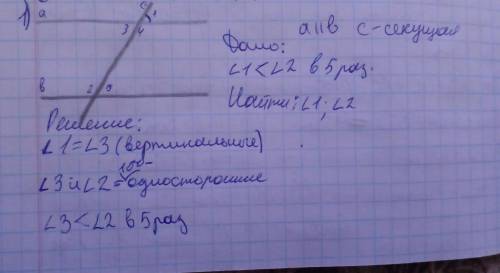 1)
a
c
1
3 4
b
2
a || b c - секущая
Дано:
∠1 < ∠2 в 5 раз.
Найти: ∠1; ∠2
Решение:
∠1 = ∠3 (вертикальные)
∠3 и ∠2 = односторонние
∠3 < ∠2 в 5 раз